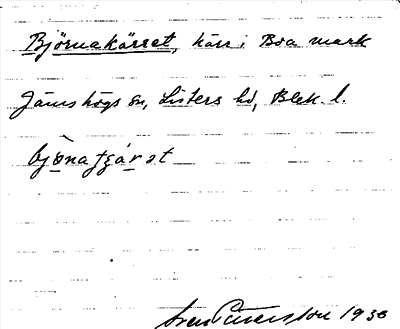 Björnakärret, kärr i Boa mark
Jämshögs sn, Listers hd, Blek. l.
bjönatjärət
Sven Petersson 1930